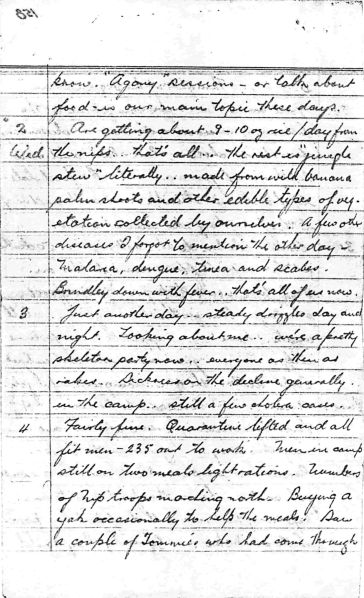 158
know. "Agony" sessions - or talks about
food - is our main topic these days.
2 Are getting about 9-10 oz rice/day from
Wed. the nips.. that's all - the rest is "jungle
stew" literally.. made from wild banana
palm shoots and other edible types of veg-
etation collected by ourselves. A few other
diseases I forgot to mention the other day -
Malaria, dengue, tinea and scabes.
Brindley down with fever.. that's all of us now.
3 Just another day.. steady drizzles day and
night. Looking about me.. we're a pretty
skeleton party now.. everyone as thin as
rakes. Sickness on the decline generally
in the camp.. still a few cholera cases.
4 Fairly fine. Quarantine lifted and all
fit men - 235 out to work. Men in camp
still on two meals light rations. Numbers
of Nip troops marching north. Buying a
yak occasionally to help the meals. Saw
a couple of Tommies who had come through